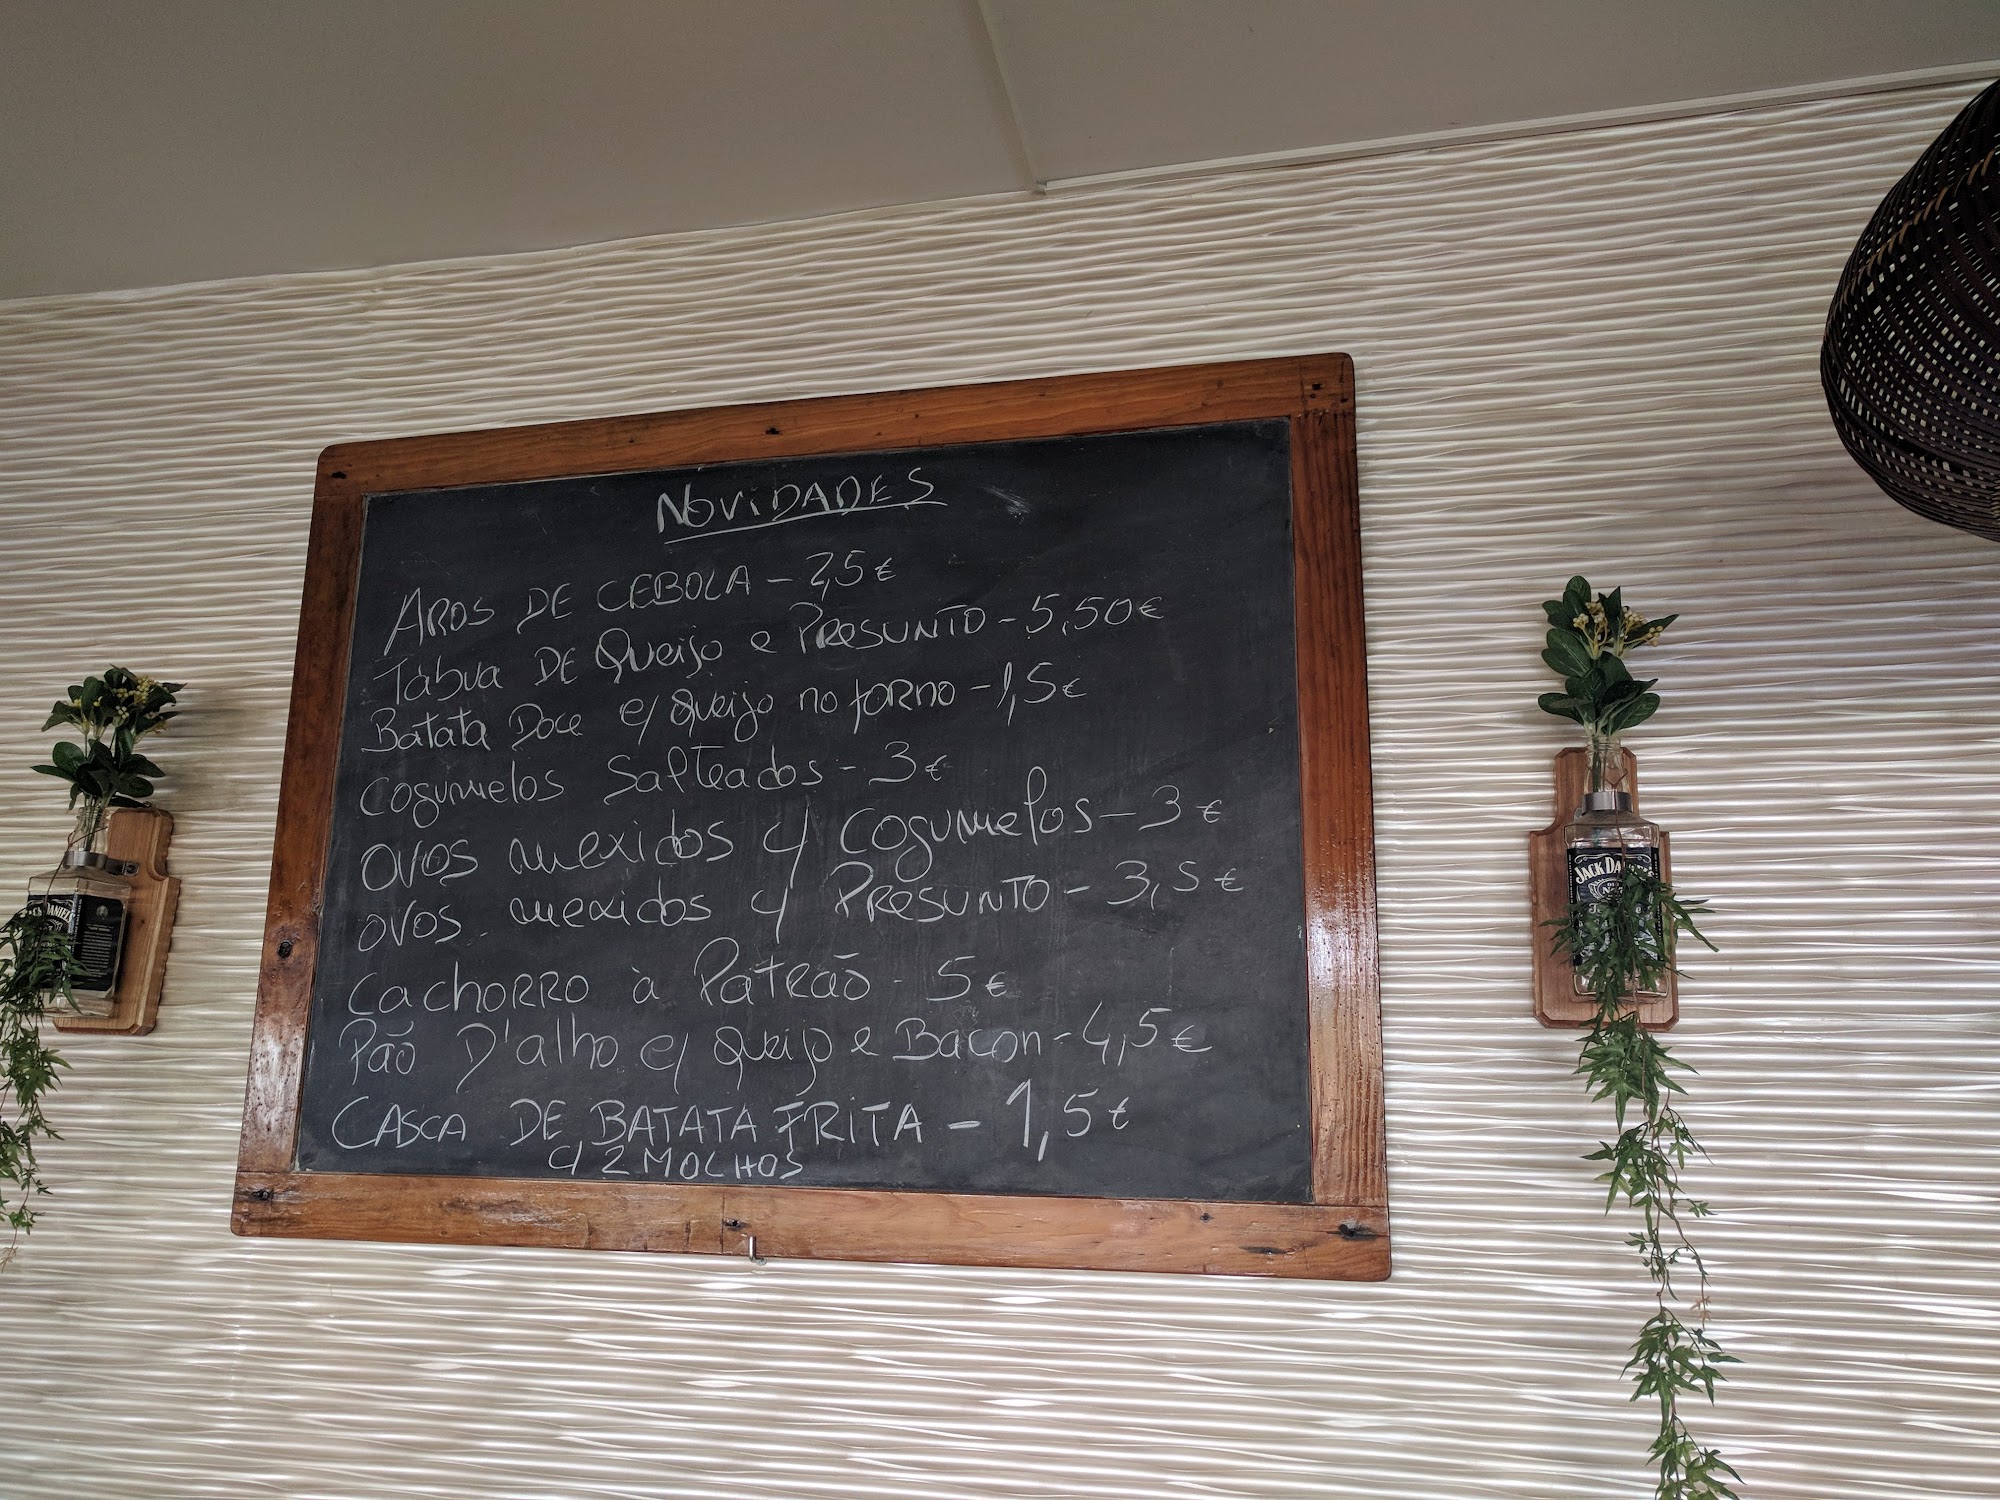 NOVIDADES
AROS DE CEBOLA - 2,5€
Tábua DE Queijo e PRESUNTO - 5,50€
Batata Doce c/ Queijo no forno - 1,5€
Cogumelos Salteados - 3€
Ovos mexidos c/ Cogumelos - 3€
Ovos mexidos c/ PRESUNTO - 3,5€
Cachorro à Patrão - 5€
Pão D'alho c/ Queijo e Bacon - 4,5€
CASCA DE BATATA FRITA - 1,5€
c/ 2 MOLHOS
JACK DANIEL'S